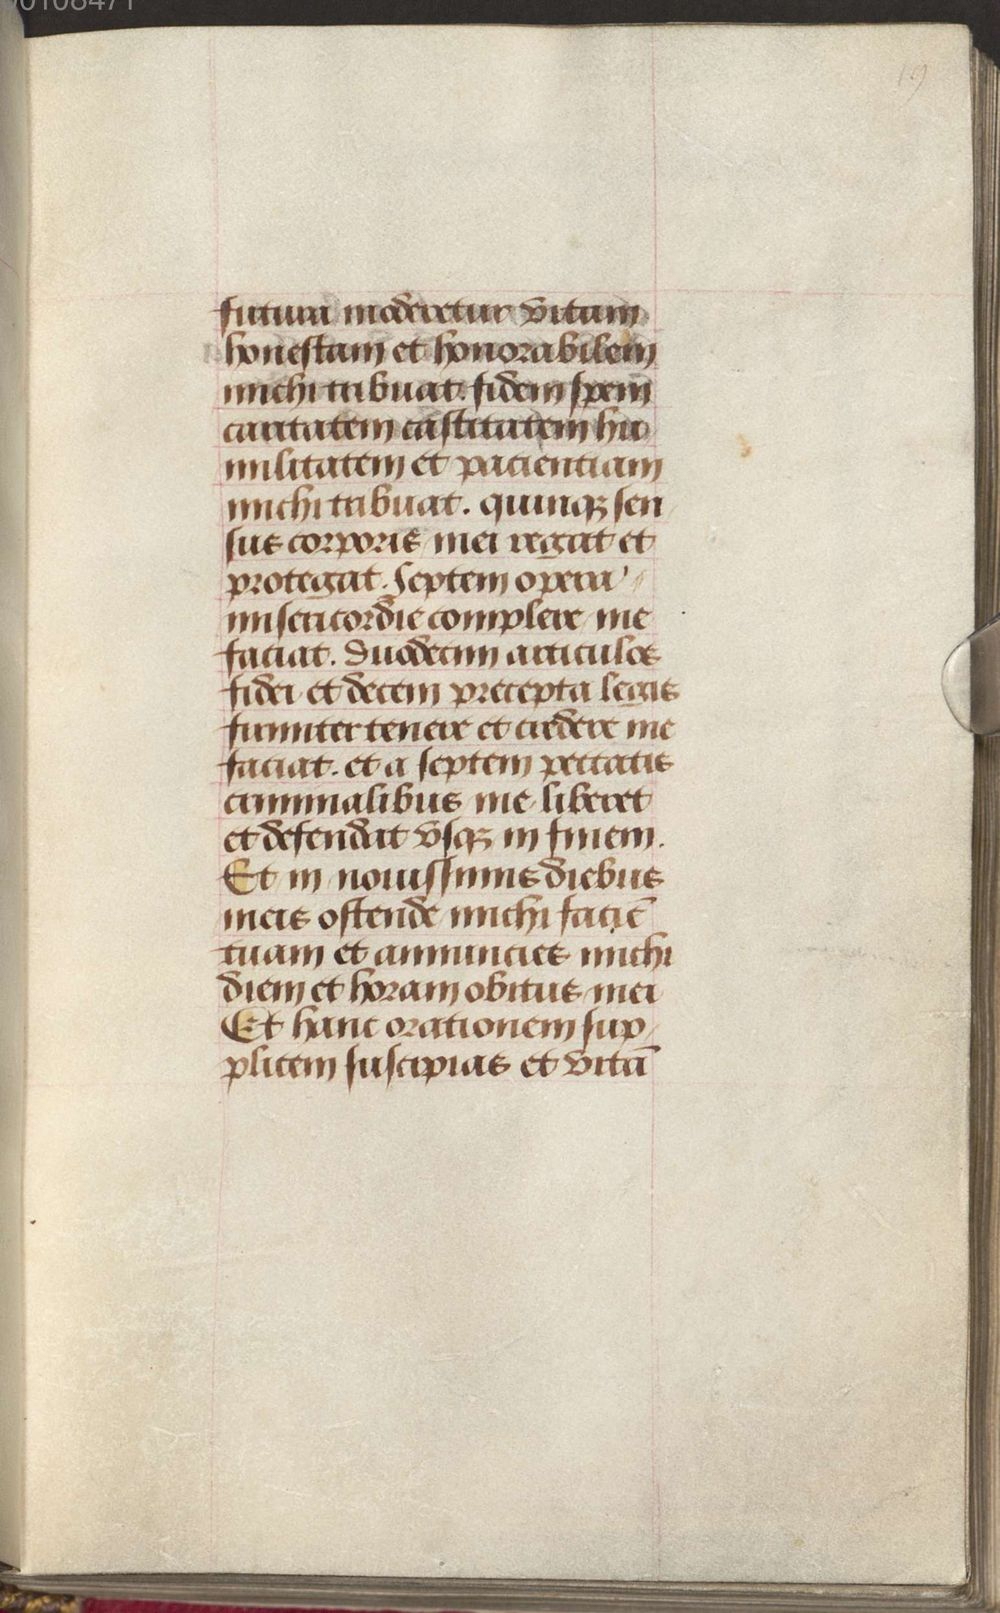 00108471
19
futura moderetur vitam
honestam et honorabilem
michi tribuat. fidem spem
caritatem castitatem hu
militatem et pacientiam
michi tribuat. quinqꝫ sen
sus corporis mei regat et
protegat. Septem opera
misericordie complere me
faciat. Duodecim articulos
fidei et decem precepta legis
firmiter tenere et credere me
faciat. et a septem peccatis
criminalibus me liberet
et defendat vsqꝫ in finem.
Et in nouissimis diebus
meis ostende michi faciē
tuam et annuncies michi
diem et horam obitus mei
Et hanc orationem sup
plicem suscipias et vitā